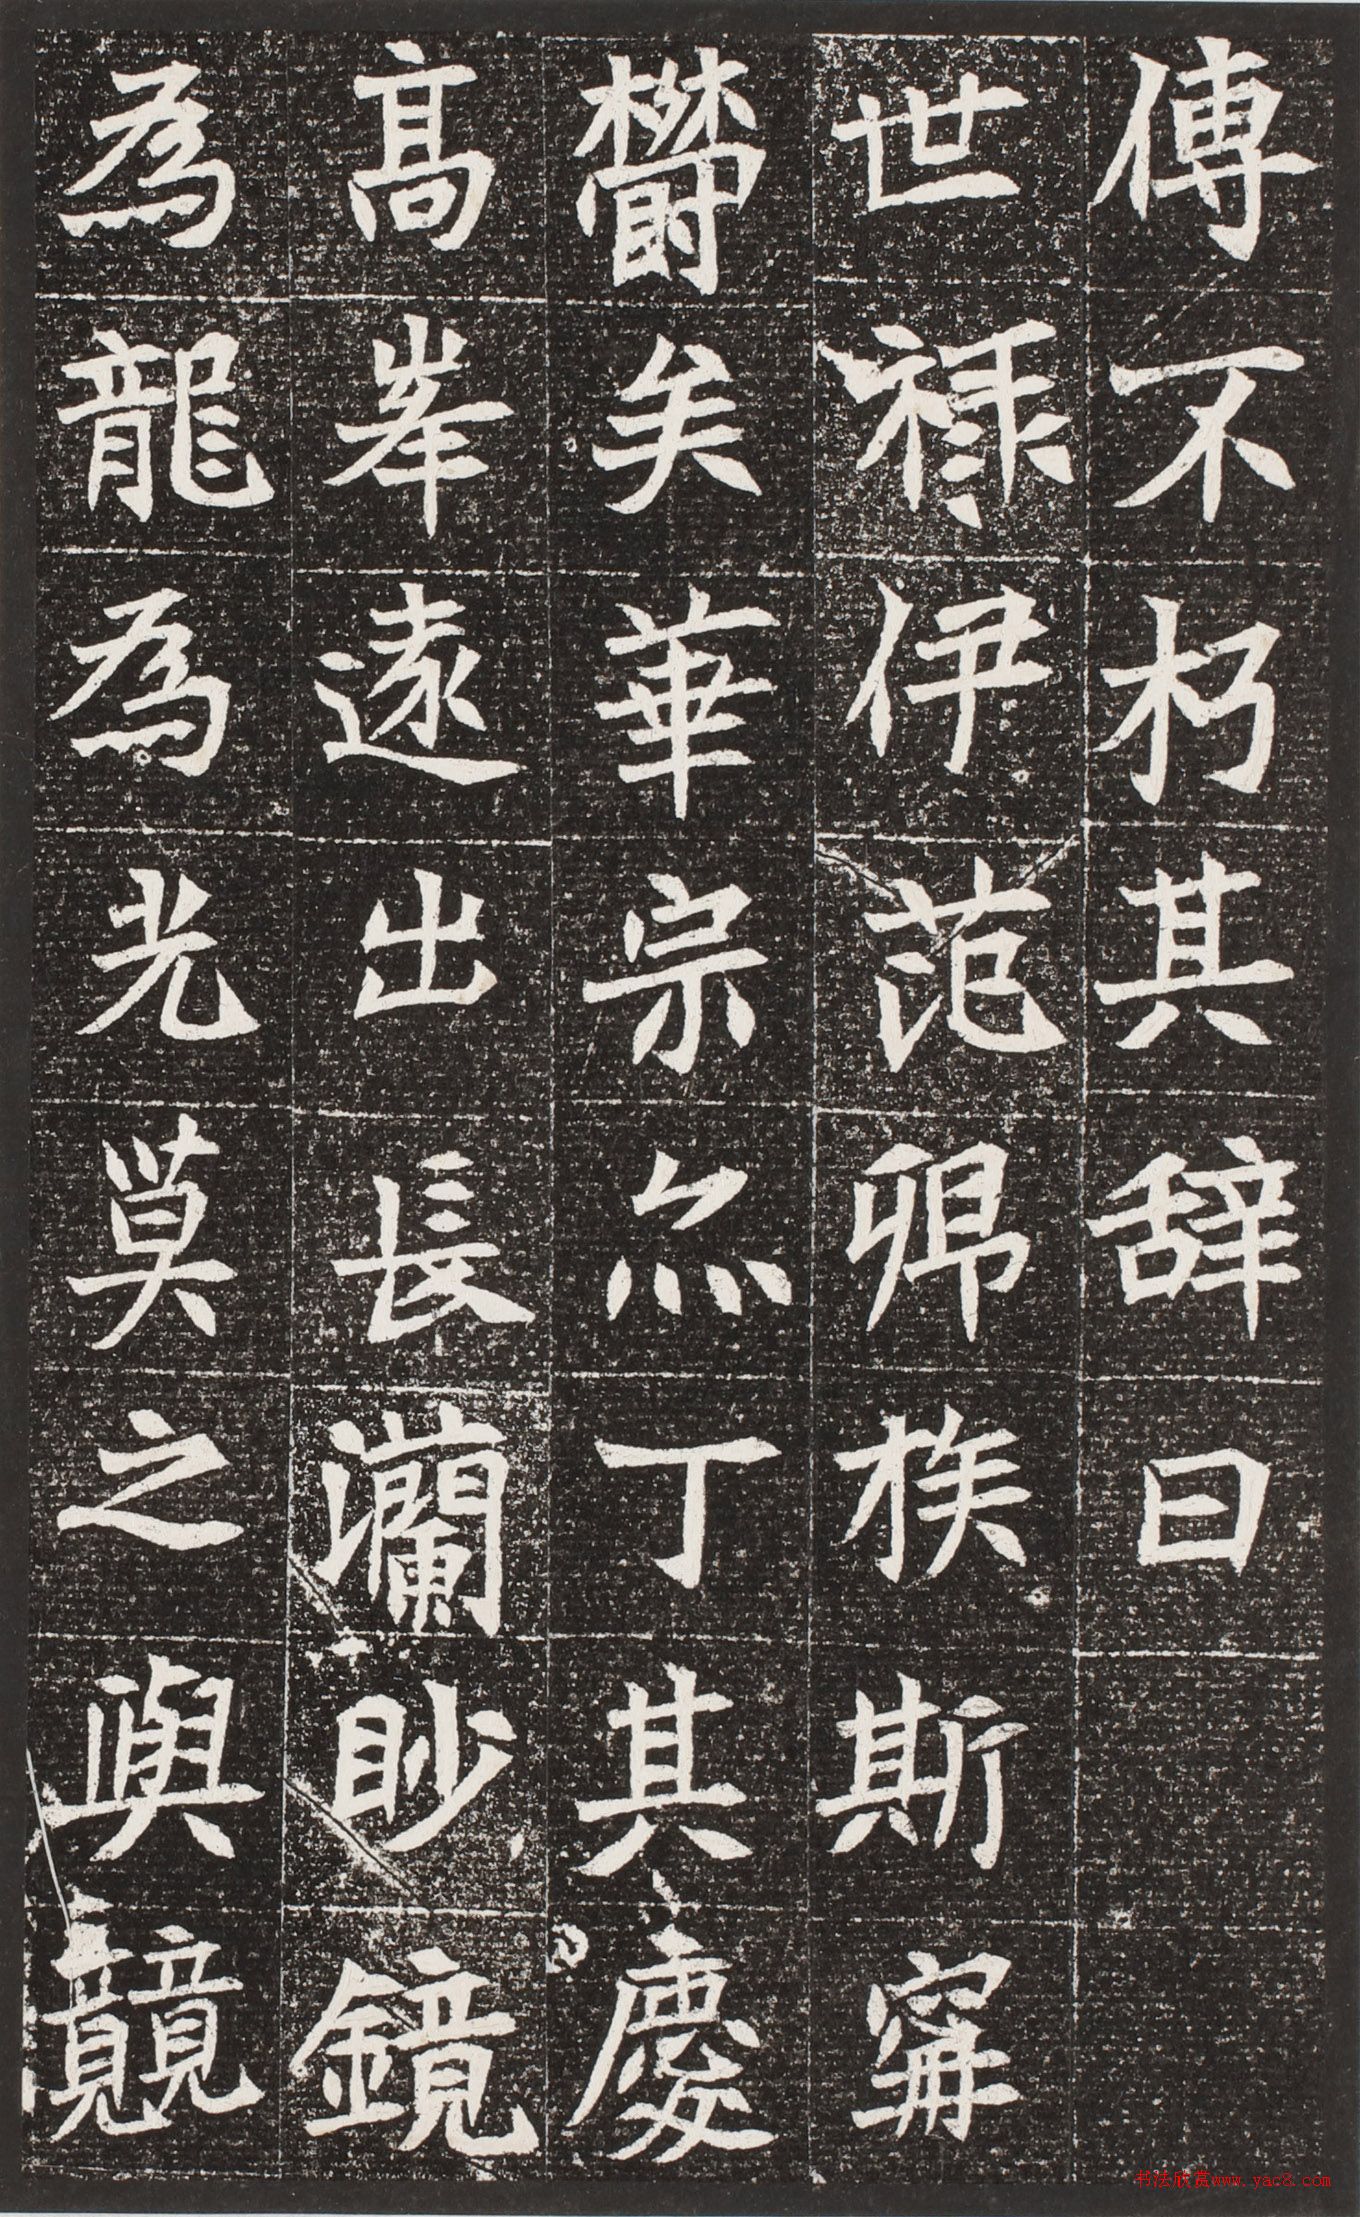 傳不朽其辭曰
世祿伊范卿族斯甯
鬱矣華宗亦丁其慶
高峯遠出長瀾眇鏡
為龍為光莫之與競
书法欣赏www.yac8.com